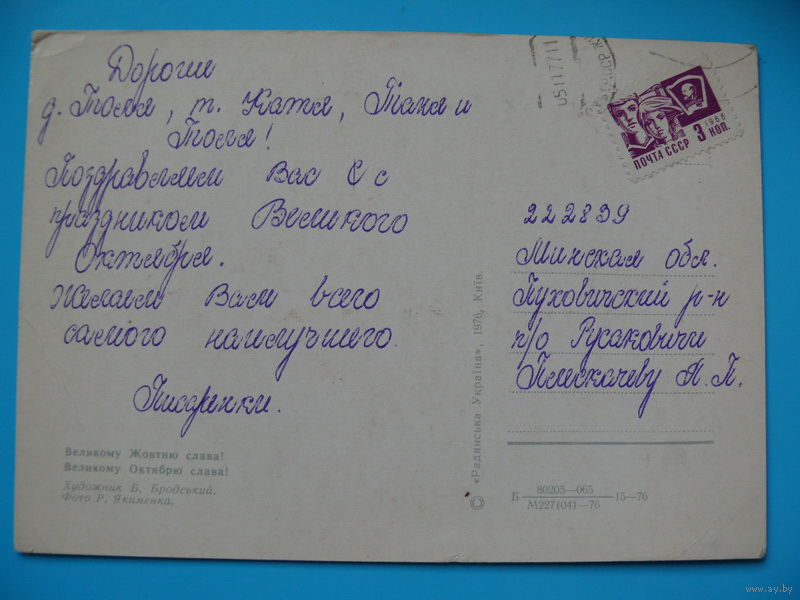 Дорогие
д. Толя, т. Катя, Таня и
Толя!
Поздравляем Вас с
праздником Великого
Октября.
Желаем Вам всего
самого наилучшего.
Писаренки.
Великому Жовтню слава!
Великому Октябрю слава!
Художник Б. Бродський.
Фото Р. Якименка.
© «Радянська Україна», 1976, Київ.
1966
3 КОП.
ПОЧТА СССР
051177 11
222839
Минская обл.
Пуховичский р-н
п/о Русаковичи
Плескачеву А. П.
Б 80205—065 15—76
М227(04)—76
www.ay.by